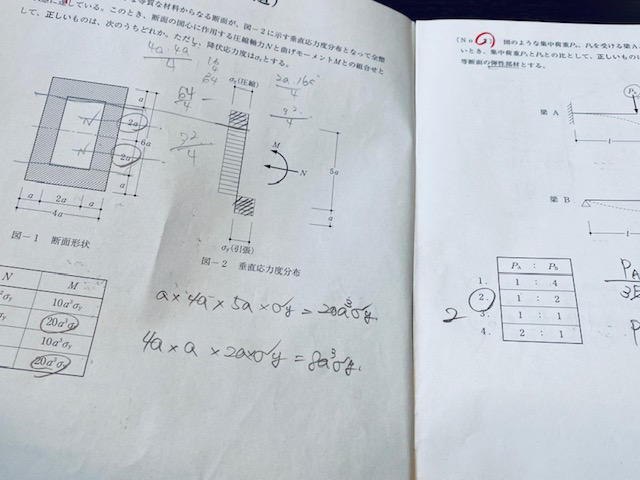 等質な材料からなる断面が、図－2に示す垂直応力度分布となって全塑
している。このとき、断面の図心に作用する圧縮軸力Nと曲げモーメントMとの組合せと
して、正しいものは、次のうちどれか。ただし、降伏応力度はσyとする。
4a・4a
4
64
4
σy(圧縮)
a
2a
2a
a
6a
N
N
a
2a
a
4a
M
N
5a
a
σy(引張)
図－1 断面形状
図－2 垂直応力度分布
N
M
10a³σy
20a³σy
10a³σy
20a³σy
a×4a×5a×σy=20a³σy.
4a×a×2a×σy=8a³σy.
(No
図のような集中荷重PA、PBを受ける梁A
いとき、集中荷重PAとPBとの比として、正しいものは
等断面の弾性部材とする。
PA
梁 A
l
梁 B
l
PA : PB
1. 1 : 4
2. 1 : 2
2
1 : 1
4. 2 : 1
PA
3E
P